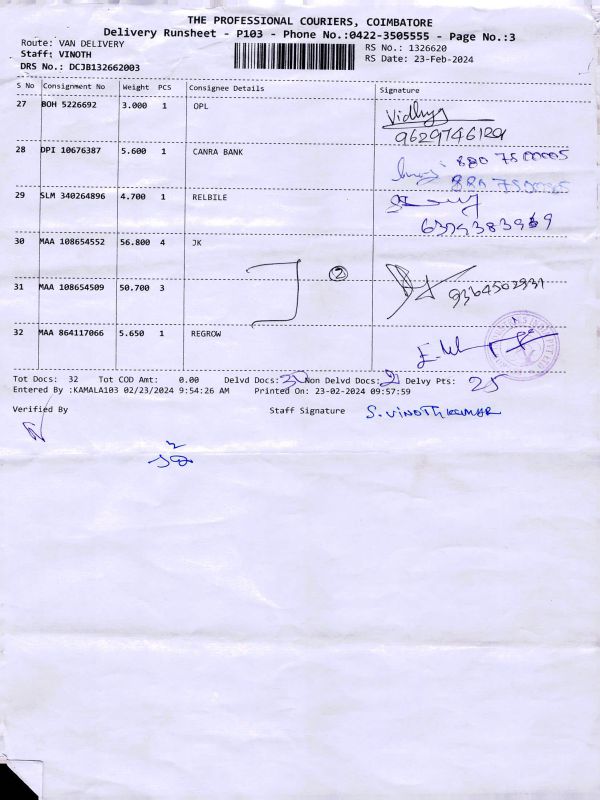 THE PROFESSIONAL COURIERS, COIMBATORE
Delivery Runsheet - P103 - Phone No.:0422-3505555 - Page No.:3
Route: VAN DELIVERY RS No.: 1326620
Staff: VINOTH RS Date: 23-Feb-2024
DRS No.: DCJB132662003
S No Consignment No Weight PCS Consignee Details Signature
27 BOH 5226692 3.000 1 OPL Vidhya
9629746129
28 DPI 10676387 5.600 1 CANRA BANK 880 7500005
880 7500005
29 SLM 340264896 4.700 1 RELBILE
6379383969
30 MAA 108654552 56.800 4 JK
2
31 MAA 108654509 50.700 3 9364502931
32 MAA 864117066 5.650 1 REGROW
Tot Docs: 32 Tot COD Amt: 0.00 Delvd Docs: Non Delvd Docs: Delvy Pts: 25
Entered By :KAMALA103 02/23/2024 9:54:26 AM Printed On: 23-02-2024 09:57:59
Verified By Staff Signature S. VINOTH KUMAR